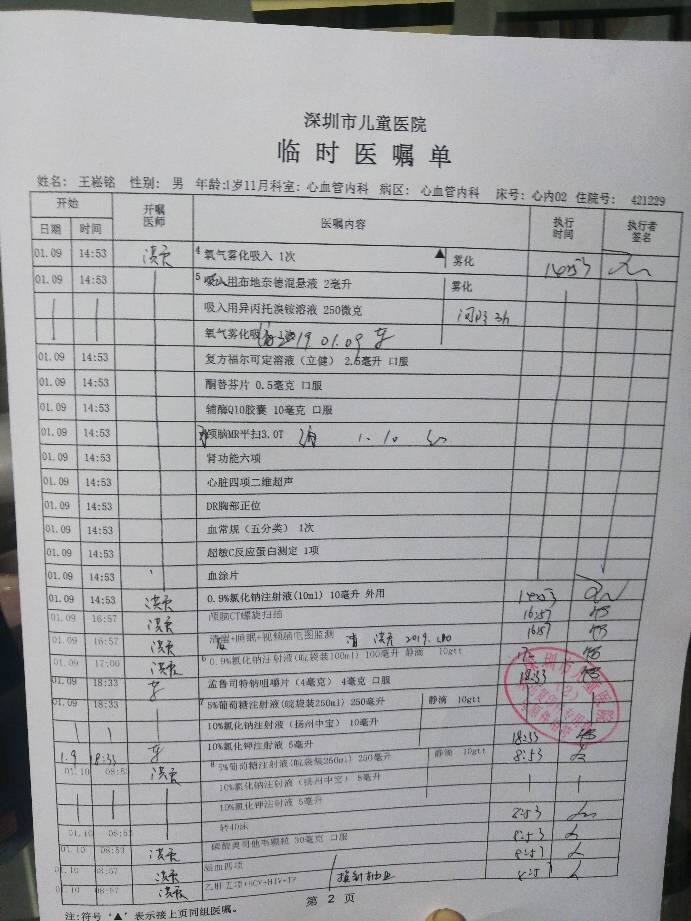 深圳市儿童医院
临时医嘱单
姓名: 王崧铭 性别: 男 年龄:1岁11月 科室: 心血管内科 病区: 心血管内科 床号: 心内02 住院号: 421229
开始 开嘱医师 医嘱内容 执行时间 执行者签名
日期 时间
01.09 14:53 4 氧气雾化吸入 1次 ▲ 雾化 14:53
01.09 14:53 5 吸入用布地奈德混悬液 2毫升 雾化
吸入用异丙托溴铵溶液 250微克
氧气雾化吸 19.01.09
01.09 14:53 复方福尔可定溶液(立健) 2.5毫升 口服
01.09 14:53 酮替芬片 0.5毫克 口服
01.09 14:53 辅酶Q10胶囊 10毫克 口服
01.09 14:53 颅脑MR平扫3.0T 1.10
01.09 14:53 肾功能六项
01.09 14:53 心脏四项二维超声
01.09 14:53 DR胸部正位
01.09 14:53 血常规(五分类) 1次
01.09 14:53 超敏C反应蛋白测定 1项
01.09 14:53 血涂片
01.09 14:53 0.9%氯化钠注射液(10ml) 10毫升 外用 14:53
01.09 16:57 颅脑CT螺旋扫描 16:57
01.09 16:57 清醒+睡眠+视频脑电图监测 16:57
01.09 17:00 6 0.9%氯化钠注射液(皖袋装100ml) 100毫升 静滴 10gtt
01.09 18:33 孟鲁司特钠咀嚼片(4毫克) 4毫克 口服 18:33
01.09 18:33 7 5%葡萄糖注射液(皖袋装250ml) 250毫升 静滴 10gtt
10%氯化钠注射液(扬州中宝) 10毫升
1.9 18:33 10%氯化钾注射液 5毫升 18:33
01.10 08:53 8 5%葡萄糖注射液(皖袋装250ml) 250毫升 静滴 10gtt 8:53
10%氯化钠注射液(扬州中宝) 8毫升
10%氯化钾注射液 5毫升
01.10 08:53 转40床 8:53
01.10 08:53 磷酸奥司他韦颗粒 30毫克 口服 8:53
01.10 08:57 凝血四项 8:57
01.10 08:57 乙肝五项+HCV+HIV+TP 8:57
注:符号 '▲' 表示接上页同组医嘱。 第 2 页